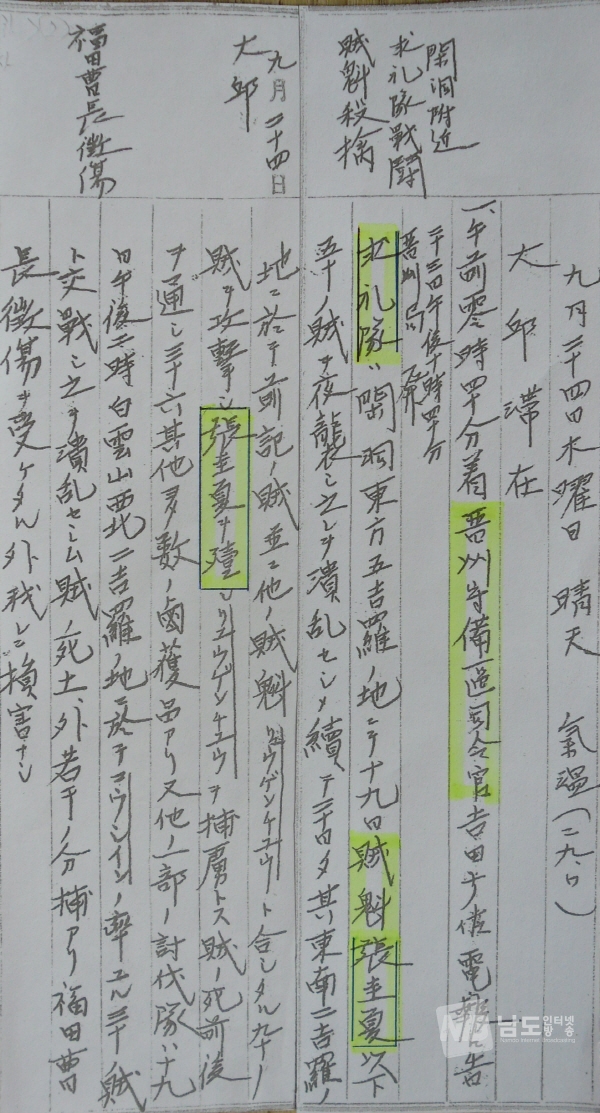 閑洞附近
求礼隊戰闘
賊魁殺擒
九月二十四日木曜日 晴天 氣温(二九、〇)
大邱滞在
一、午前零時四十分着 晋州守備區司令官吉田少佐電報告
二十三日午後十時四十分
晋州局
求礼隊ハ閑洞東方五吉羅ノ地ニテ十九日賊魁張圭夏以下
五十ノ賊ヲ夜襲シ之レヲ潰乱セシメ續テ二十日夕其東南二吉羅ノ
九月二十四日
大邱
福田曹長徴傷
地ニ於テ前記ノ賊並ニ他ノ賊魁リュウゲンケュウノト合シタル九十ノ
賊ヲ攻撃シ張圭夏ヲ殪シリュウゲンチュウヲ捕虜トス賊ノ死前後
ヲ通シ三十六其他多数ノ鹵獲品アリ又他ノ一部ノ討伐隊ハ十九
日午後三時白雲山西北二吉羅ノ地ニ於テコウシインノ率ユル三十ノ賊
ト交戰シ之ヲ潰乱セシム賊ノ死十、外若干ノ分捕アリ福田曹
長徴傷ヲ受ケタル外我レニ損害ナシ
남도 인터넷방송